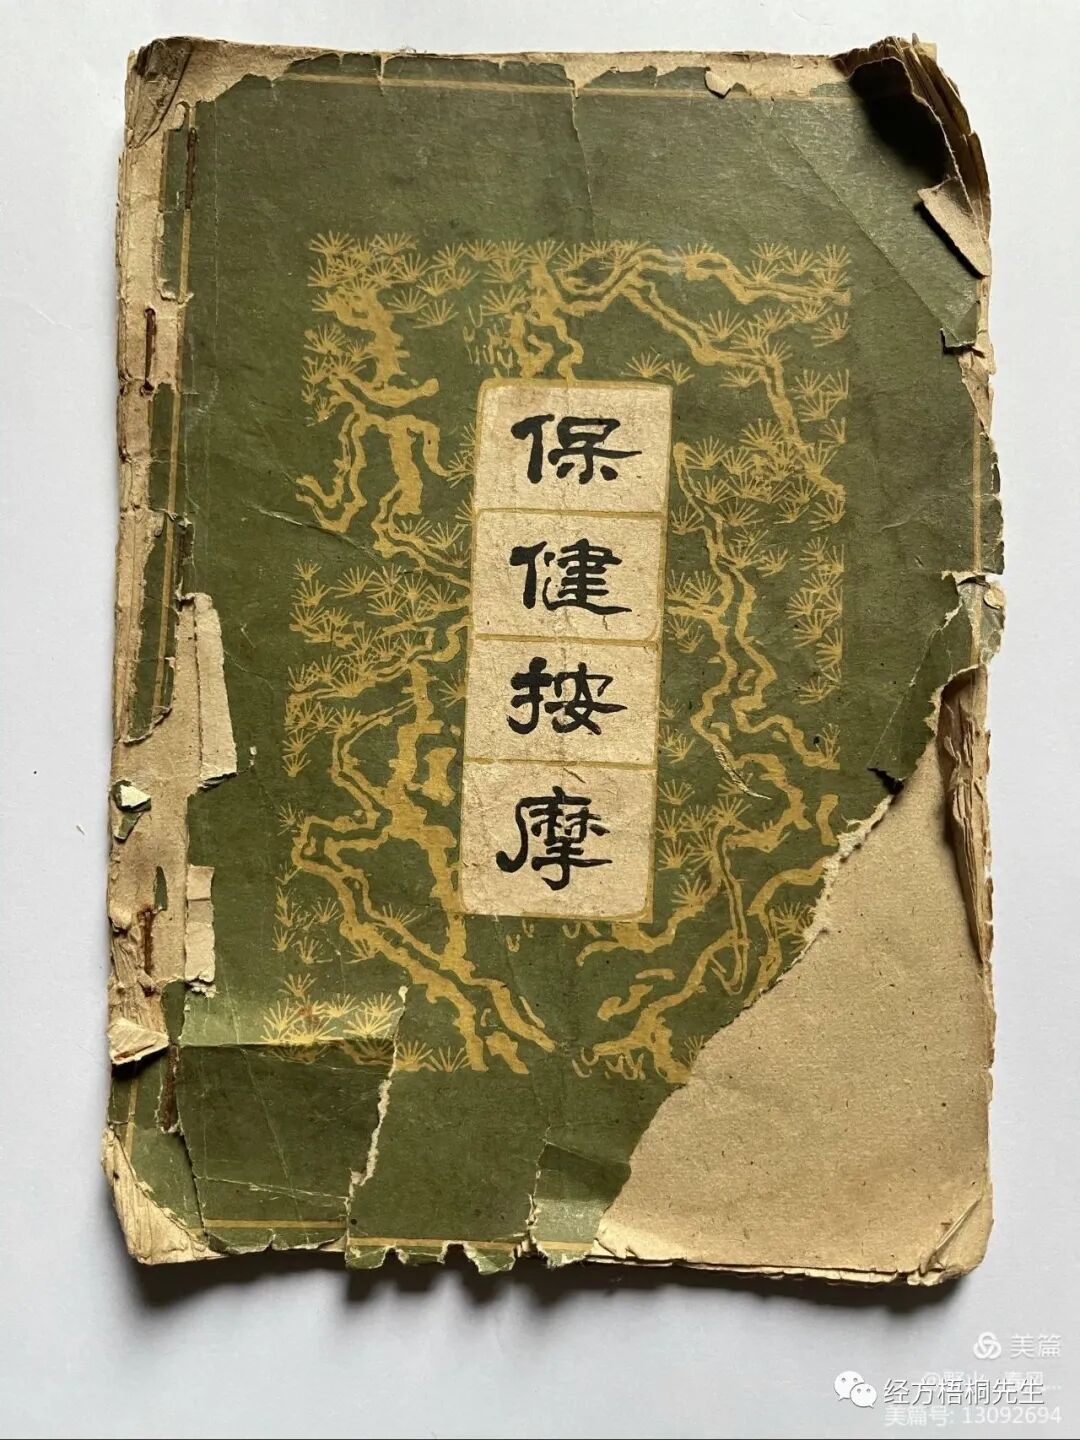 保
健
按
摩
美篇
经方梧桐先生
美篇号: 13092694